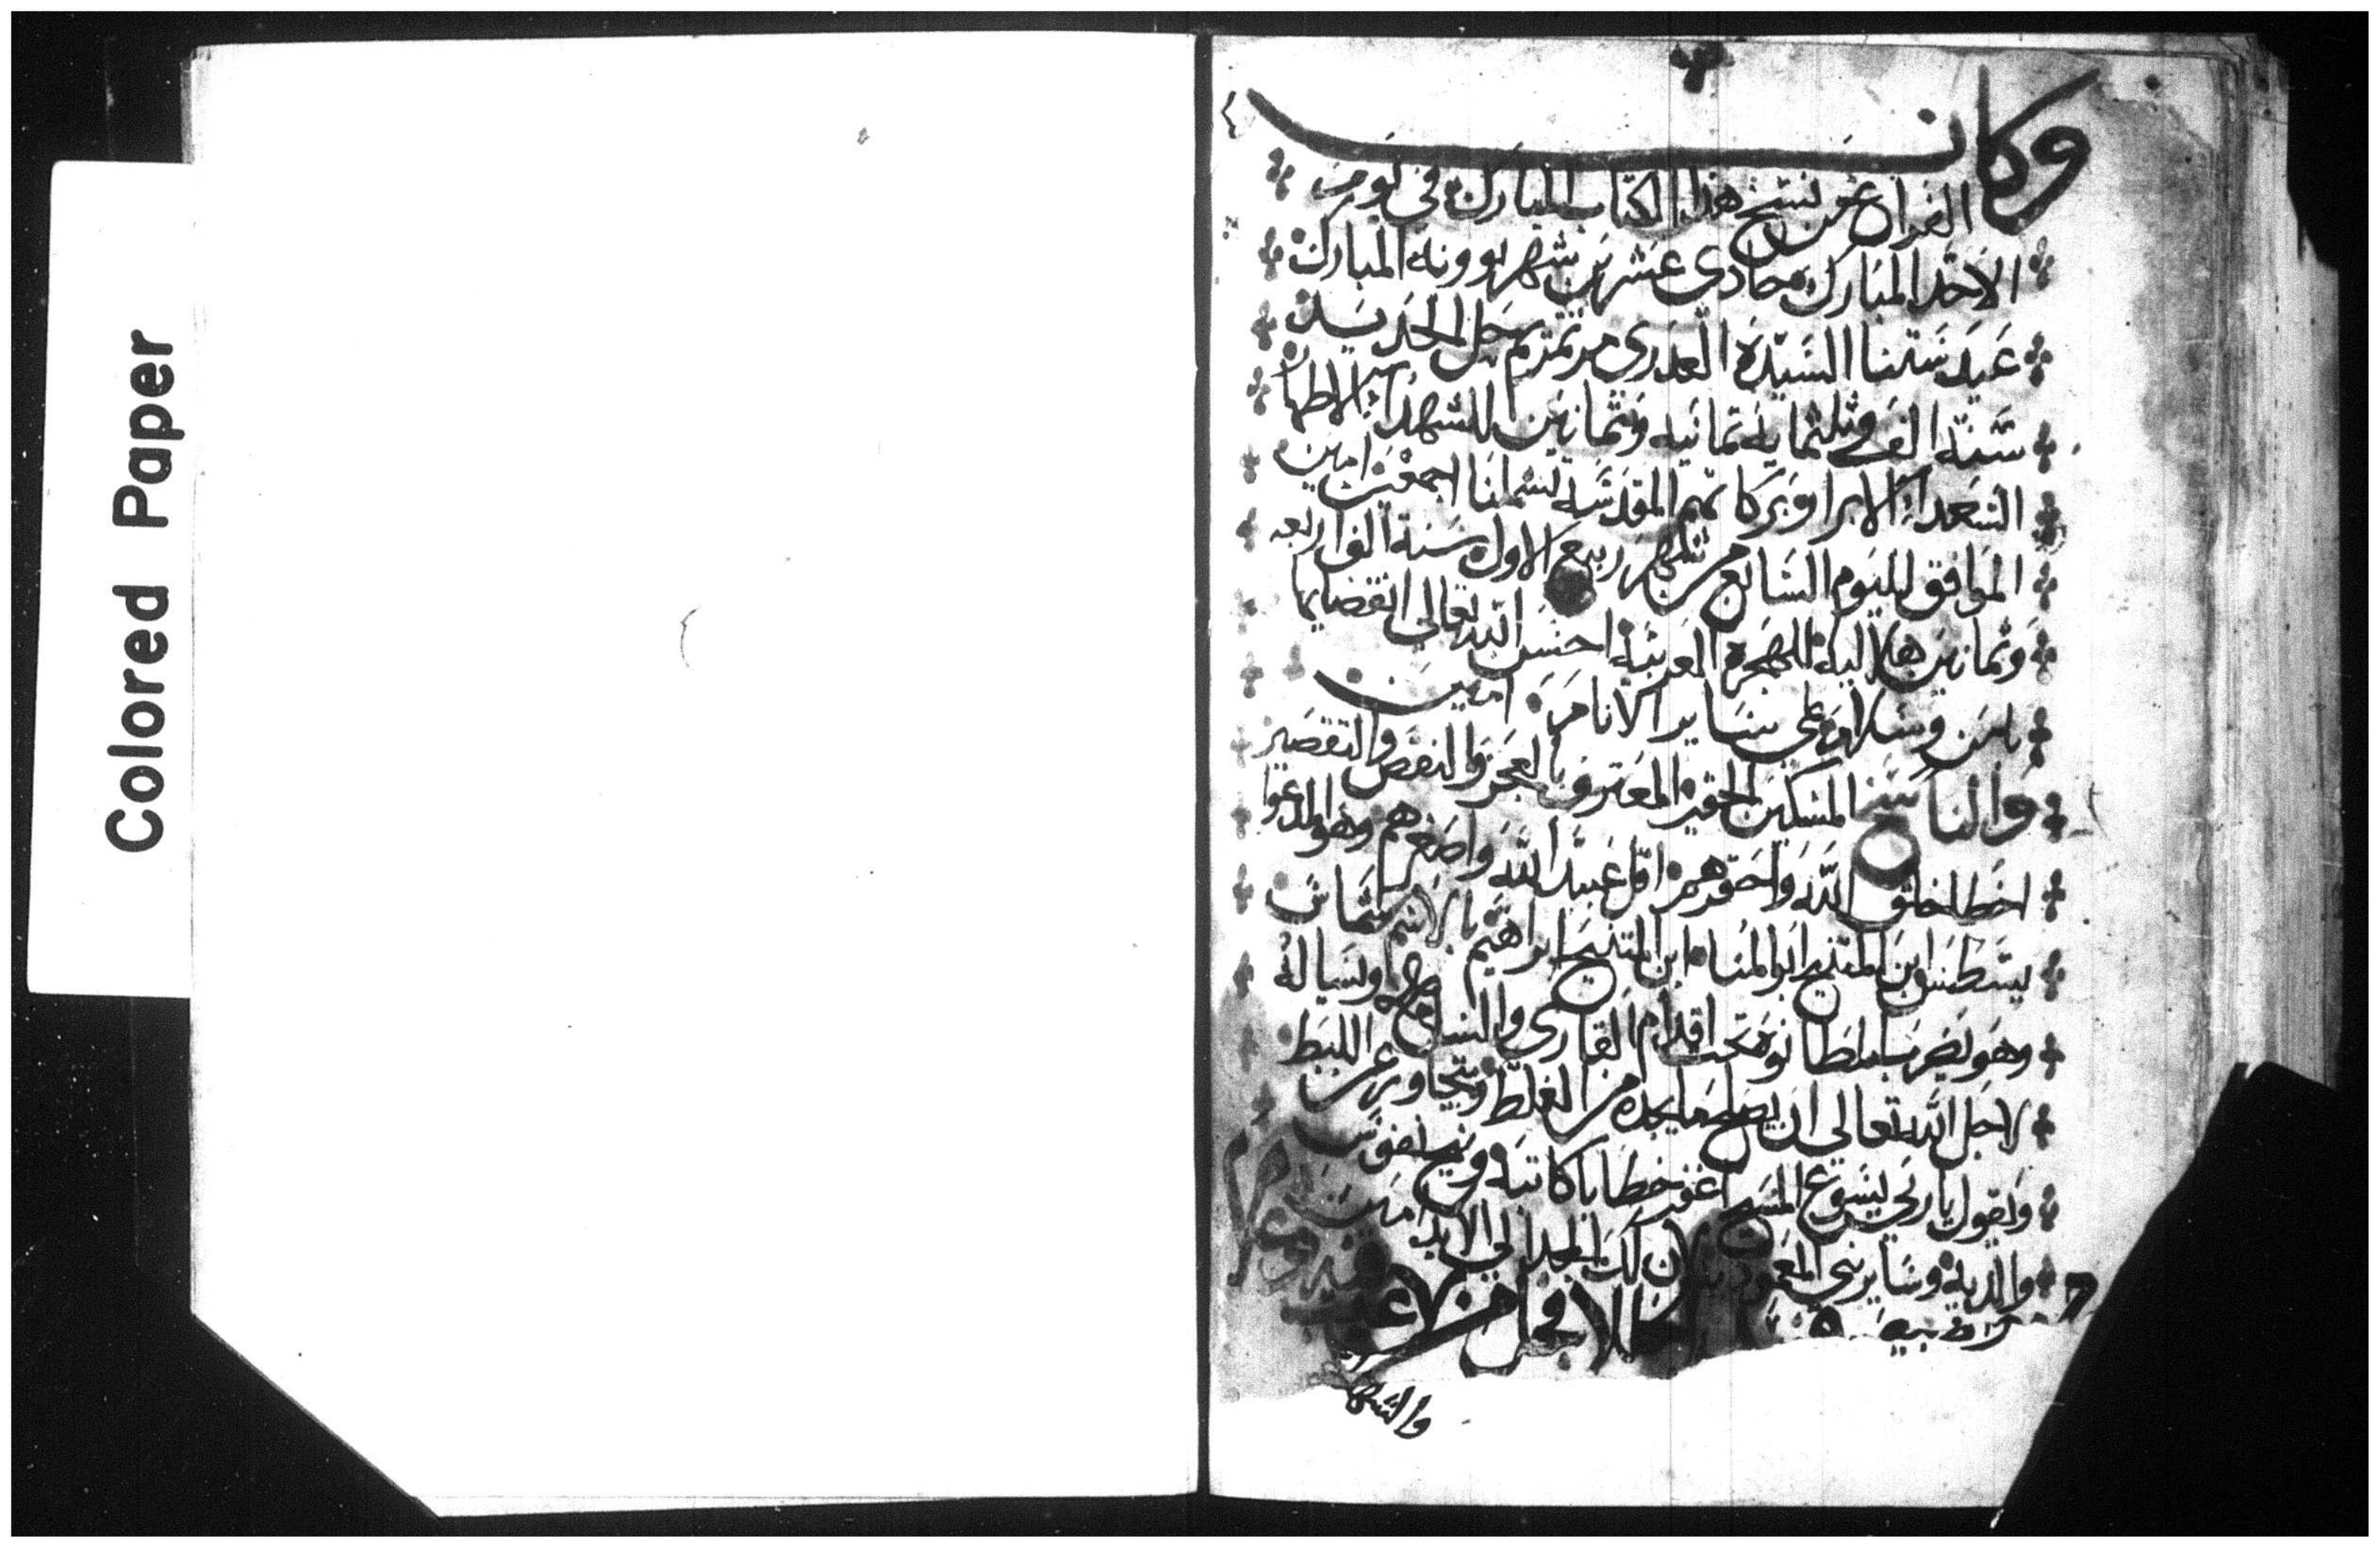 Colored Paper
وكان
الفراغ من نسخ هذا الكتاب المبارك في يوم
الاحد المبارك حادي عشرين شهر بوونه المبارك
عيد ستنا السيده العدرى مرتمريم بحل الحديد
سنة الف وثلثمايه ثمانيه وثمانين للشهدا الاطهار
السعدا الابرار وبركاتهم المقدسه تشملنا اجمعين امين
الموافق لليوم السابع من شهر ربيع الاول سنة الف اربعه
وثمانين هلاليه للهجرة العربيه احسن الله تعالى انقضايها
بامن وسلامه على ساير الانام امين
والناسخ المسكين الحقير المعترف بالعجز والنقص والتقصير
اخطا خلق الله واحقرهم اقل عبيد الله واصغرهم وهو المدعوا
ابن المتنيح ابو المنا ابن المتنيح ابراهيم بالاسم شماس
وهو يضرب المطانوه تحت اقدام القاري والسامع ويساله
لاجل الله تعالى ان يصلح ما يجده من الغلط ويتجاوز عن اللبط
ويقول يا ربي يسوع المسيح اغفر خطايا كاتبه ونيح نفوس
والديه وساير بني المعموديه لان لك المجد الى الابد امين
والشكر